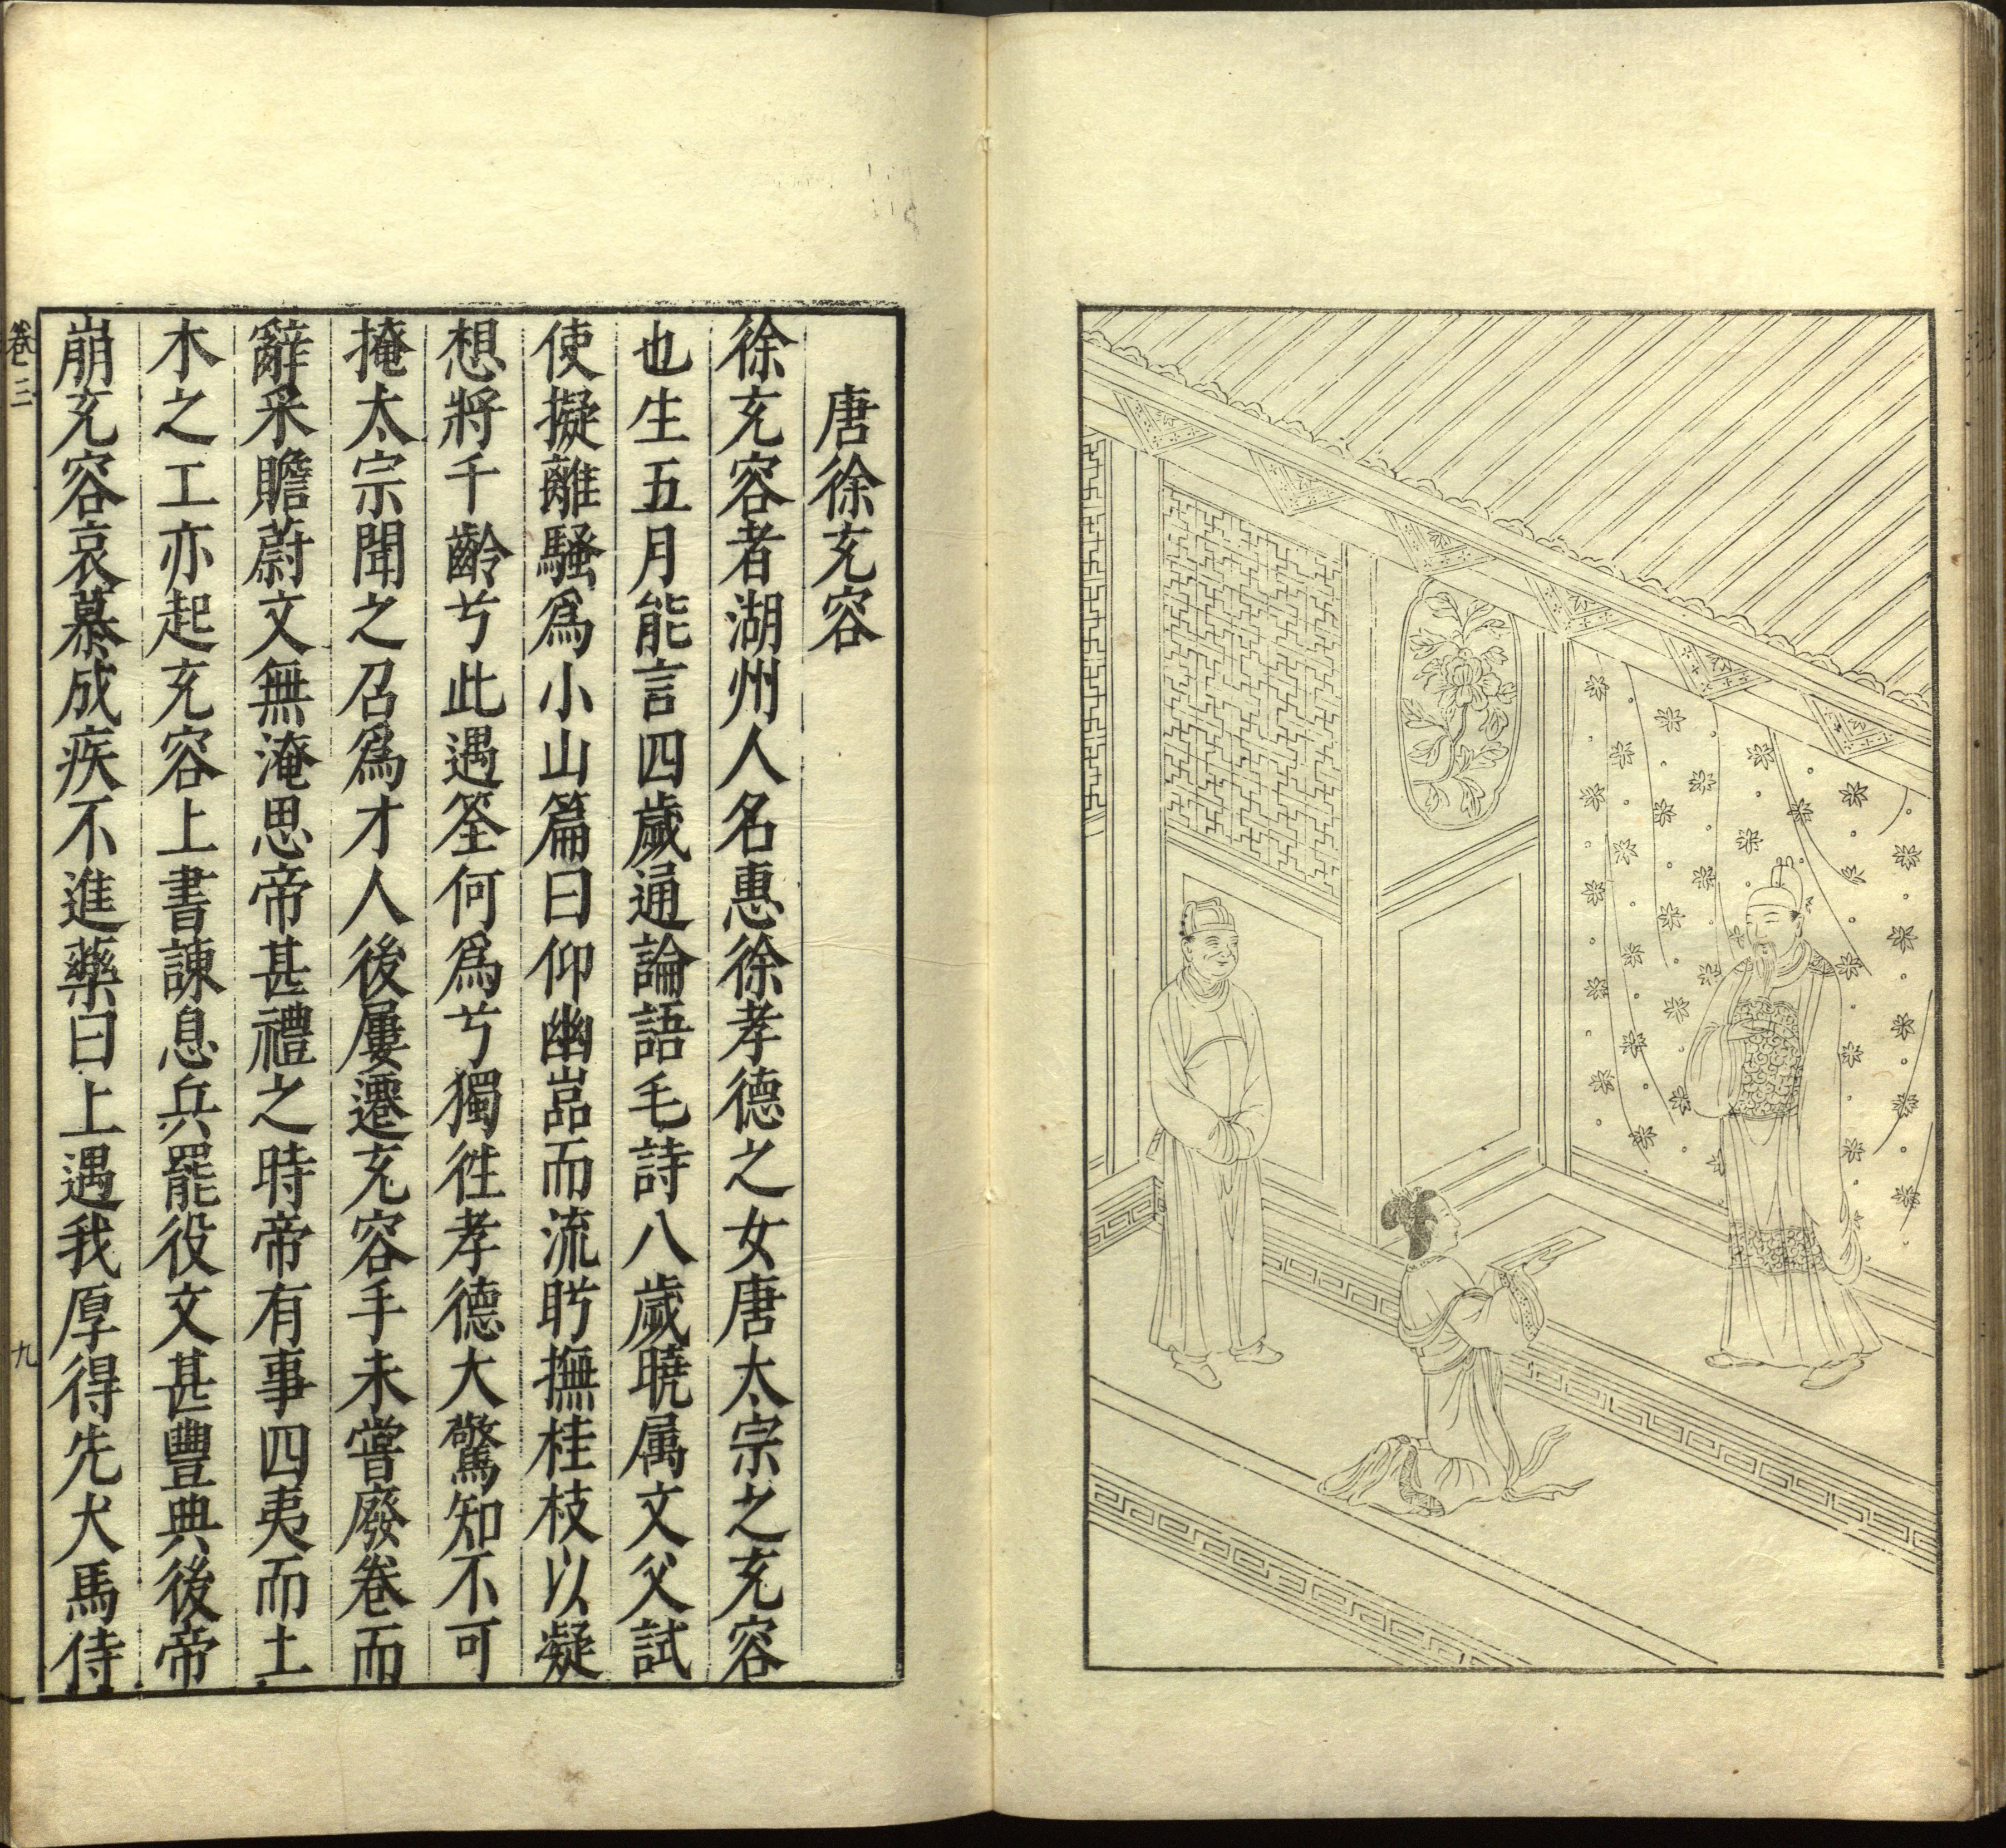 唐徐充容
徐充容者湖州人名惠徐孝德之女唐太宗之充容
也生五月能言四歲通論語毛詩八歲曉属文父試
使擬離騷爲小山篇曰仰幽嵓而流盻撫桂枝以凝
想將千齡兮此遇筌何爲兮獨徃孝德大驚知不可
掩太宗聞之召爲才人後屢遷充容手未嘗廢卷而
辭采贍蔚文無淹思帝甚禮之時帝有事四夷而土
木之工亦起充容上書諫息兵罷役文甚豐典後帝
崩充容哀慕成疾不進藥曰上遇我厚得先犬馬侍
卷三
九